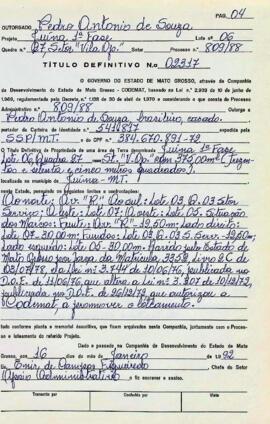 Pág. 04
OUTORGADO Pedro Antonio de Souza
Projeto Juína, 1ª Fase Lote nº 06
Quadra nº 27, Setor "Vila Op." Processo nº 809/88
TÍTULO DEFINITIVO No. 02317
O GOVERNO DO ESTADO DE MATO GROSSO, através da Companhia
de Desenvolvimento do Estado de Mato Grosso - CODEMAT, baseado na Lei nº 2.939 de 10 de junho de
1969, regulamentada pelo Decreto nº 1.128 de 30 de abril de 1970 e considerando o que consta do Processo
Administrativo nº 809/88
Pedro Antonio de Souza, brasileiro, casado
portador da Carteira de Identidade nº expedida pela
SSP/MT. CPF nº 384.670.891-72
o Título Definitivo de Propriedade de uma área de Terra denominada Juína 1ª Fase
Lote 06 Quadra 27 St. "V. Op." com 375,00m² (Trezen-
tos e setenta e cinco metros quadrados).
localizada no município de Juína - MT.
neste Estado, dentro dos seguintes limites e confrontações:
Ao norte: Av. "R." Ao sul: Lote. 03, Q.03 Stor
Serviço; O este: Lote. 07; Oeste: Lote. 05. Situação
dos Marcos: Frente: Av. "R" - 12,50. Lado direito:
Lote. 07-30,00m. Fundos: Lote. 03, Q.03 S. Serv. -12,50m.
Lado esquerdo: Lote 05-30,00m. Havido pelo Estado de
Mato Grosso por força da Matrícula 3352, Livro 2C de
03/07/78, da Lei nº 3.744 de 10/06/76, publicada no
D.O.E. de 11/06/76, que altera a Lei nº 3.307 de 10/12/72,
publicada no D.O.E. de 26/12/72 que autorizou a
Codemat a promover o loteamento.
tudo conforme planta e memorial descritivo, que ficam arquivados nesta Companhia, juntamente com o Processo
e loteamento do referido Projeto.
Dado e passado na Companhia de Desenvolvimento do Estado de Mato
Grosso, aos 16 dias do mês de Janeiro de 1.992
Eu, Enir de Campos Figueiredo Chefe do Setor
Apoio Administrativo o fiz escrever e assino.
Transmitente Conferido por Visto